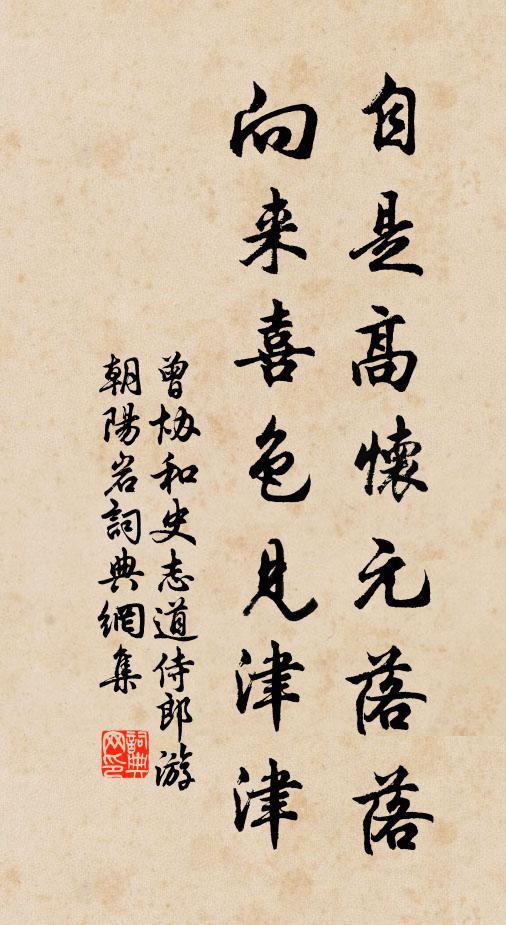 自是高懷元落落
向来喜色見津津
曾协和史志道侍郎游
朝陽岩詞典網集
詞典网印